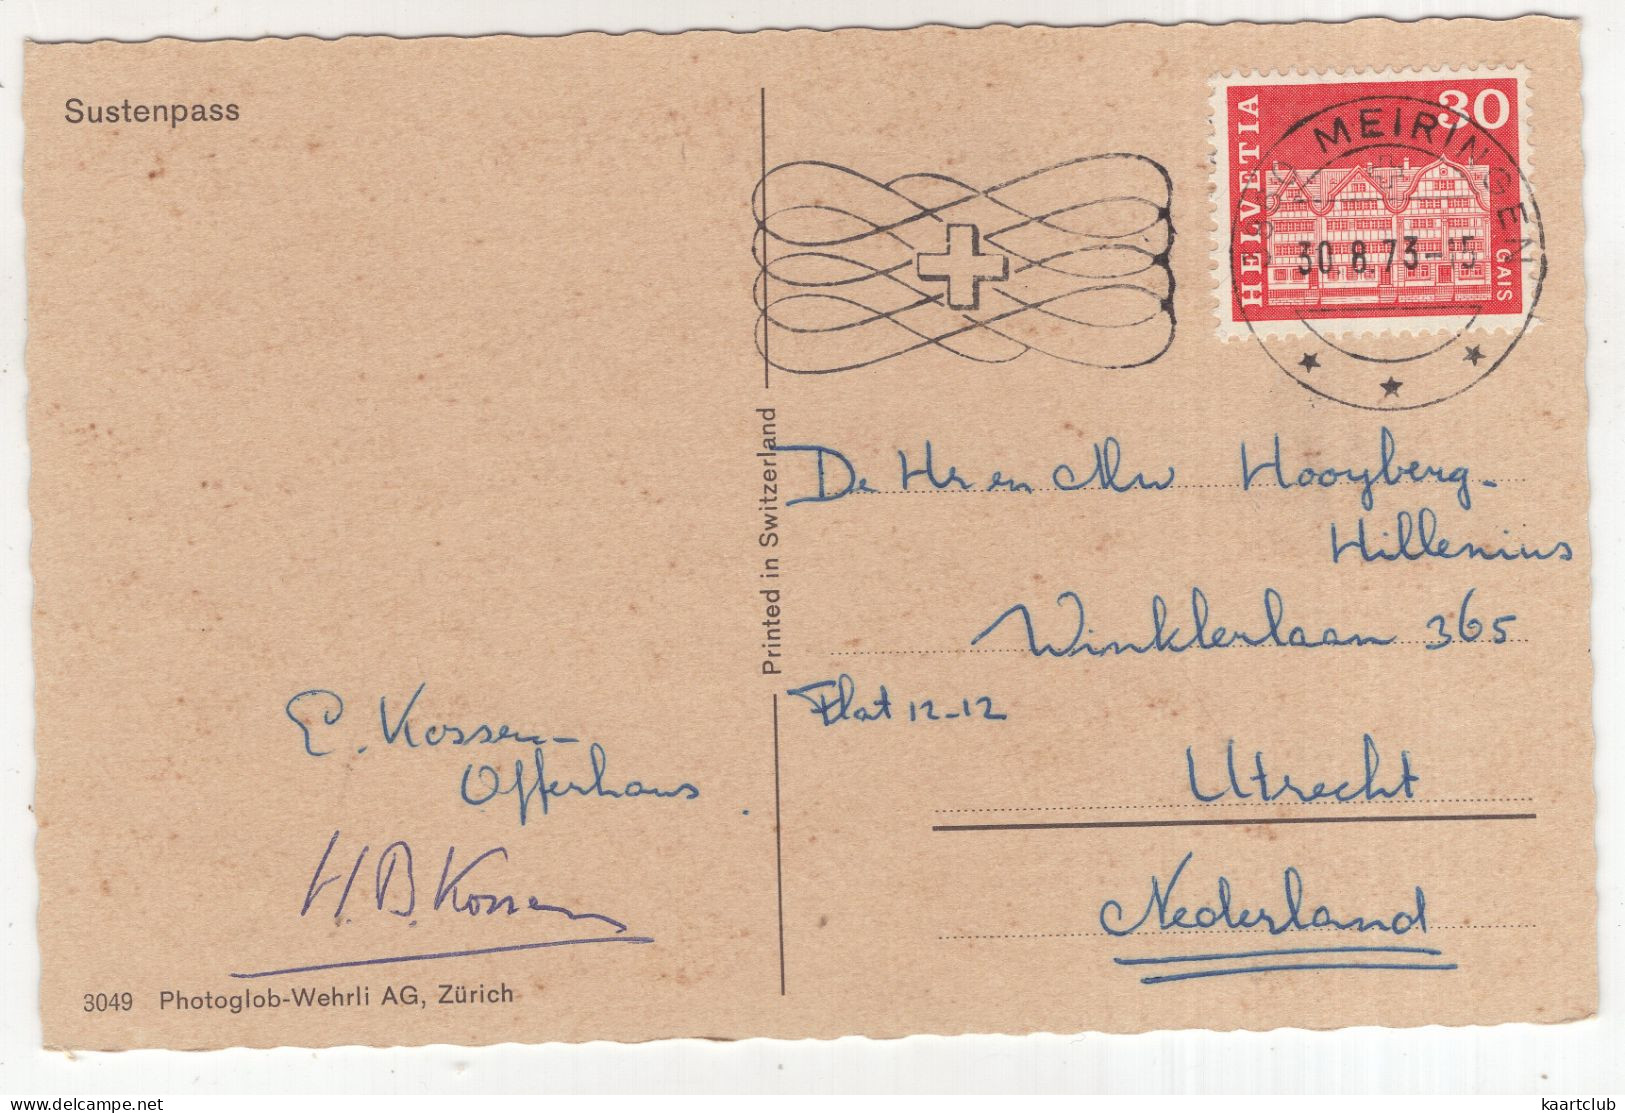 Sustenpass
HELVETIA
30
GAIS
3860 MEIRINGEN
30.8.73-15
Printed in Switzerland
De Hr en Mw Hooyberg-
Hillenius
Winklerlaan 365
Flat 12-12
Utrecht
Nederland
E. Kossen-
Offerhaus.
H.B. Kossen
3049 Photoglob-Wehrli AG, Zürich
kaartclub